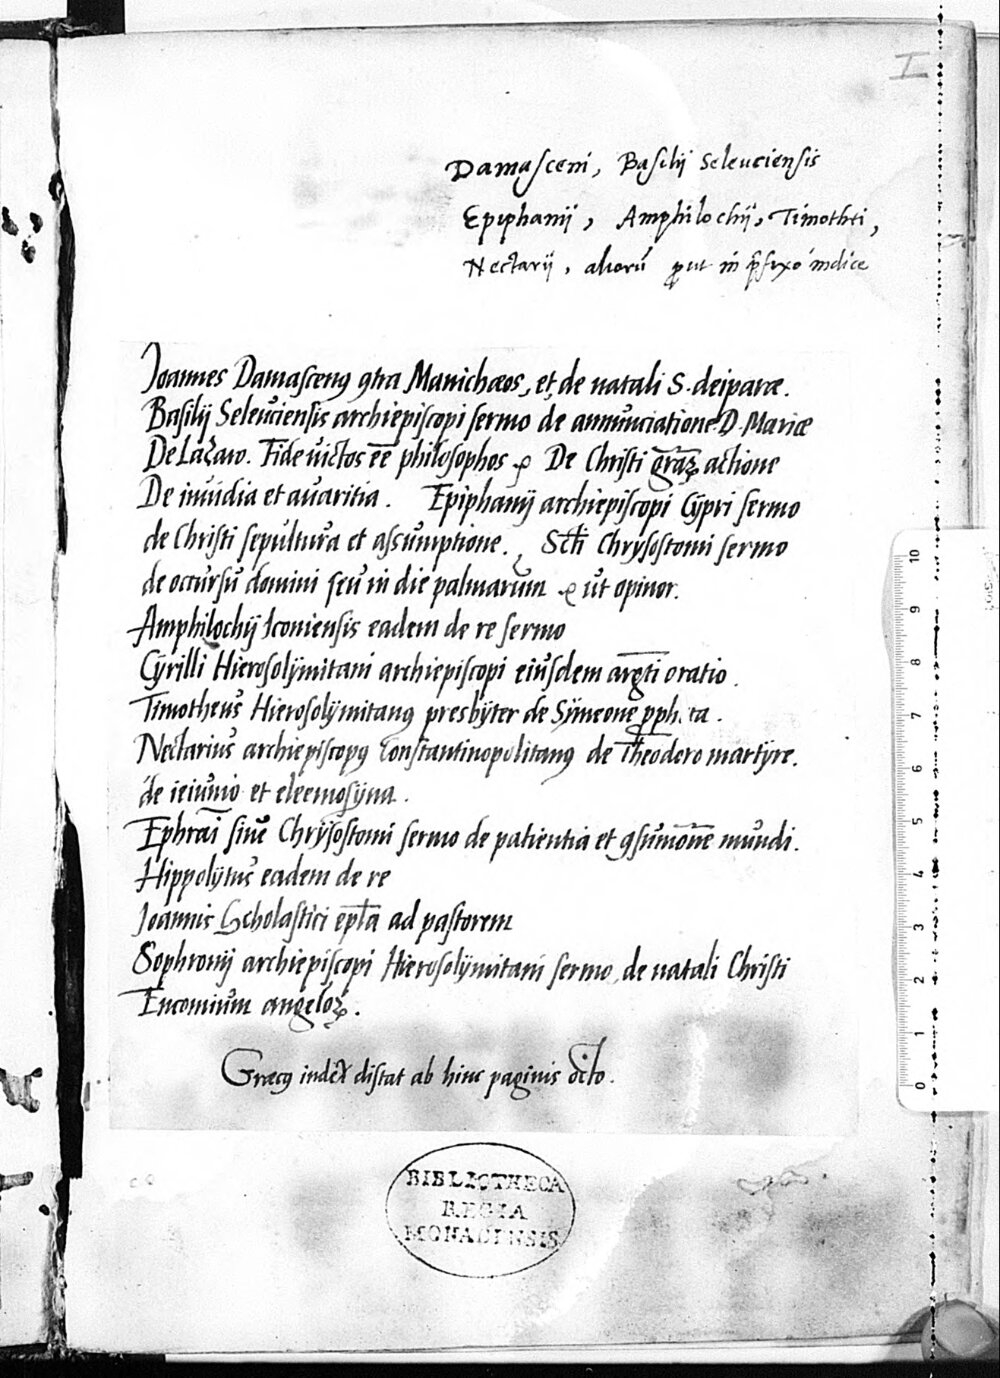 I
Damasceni, Basilij Seleuciensis
Epiphanij, Amphilochij, Timothei,
Nectarij, aliorū ꝓut in p̄fixo indice
Joannes Damascenꝰ ꝯtra Manichæos, et de natali S. deiparæ.
Basilij Seleuciensis archiepiscopi sermo de annunciatione D. Mariæ
De Lazaro. Fide uictos eē philosophos De Christi gr̄aꝝ actione
De inuidia et auaritia. Epiphanij archiepiscopi Cypri sermo
de Christi sepultura et assumptione. Scti Chrysostomi sermo
de occursu domini seu in die palmarum ut opinor.
Amphilochij Iconiensis eadem de re sermo
Cyrilli Hierosolymitani archiepiscopi eiusdem arg̅ti oratio.
Timotheus Hierosolymitanꝰ presbyter de Symeone ꝓpheta.
Nectarius archiepiscopꝰ Constantinopolitanꝰ de Theodoro martyre.
de ieiunio et eleemosyna.
Ephrai siue Chrysostomi sermo de patientia et ꝯsumōne mundi.
Hippolytus eadem de re
Joannis Scholastici ep̄la ad pastorem
Sophronij archiepiscopi Hierosolymitani sermo de natali Christi
Encomium angeloꝝ.
Græcꝰ index distat ab hinc paginis octo.
BIBLIOTHECA
REGIA
MONACENSIS
10
9
8
7
6
5
4
3
2
1
0